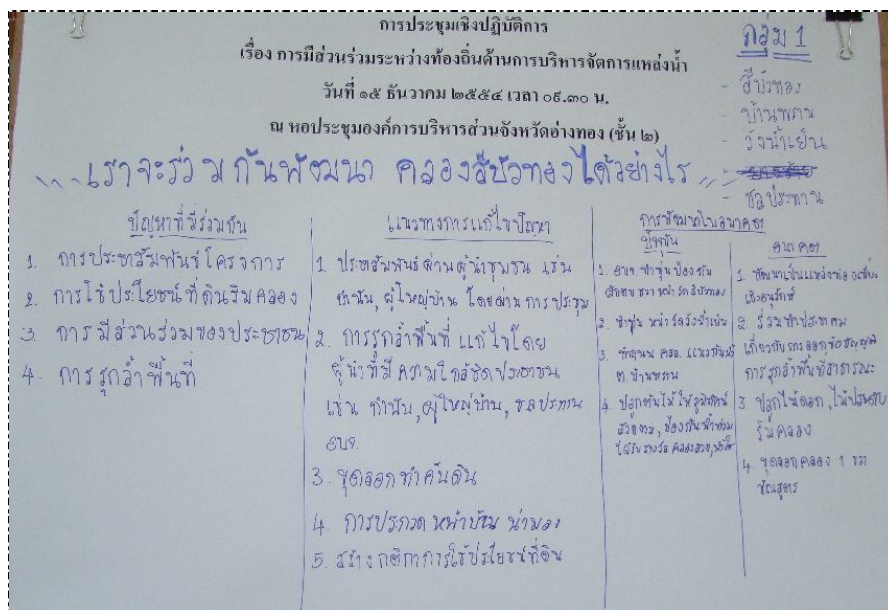 การประชุมเชิงปฏิบัติการ
เรื่อง การมีส่วนร่วมระหว่างท้องถิ่นด้านการบริหารจัดการแหล่งน้ำ
วันที่ ๑๕ ธันวาคม ๒๕๕๔ เวลา ๐๙.๓๐ น.
ณ หอประชุมองค์การบริหารส่วนจังหวัดอ่างทอง (ชั้น ๒)
กลุ่ม 1
- สีบัวทอง
- บ้านพราน
- วังน้ำเย็น
- ชลประทาน
เราจะร่วมกันพัฒนา คลองสีบัวทองได้อย่างไร
ปัญหาที่มีร่วมกัน
1. การประชาสัมพันธ์โครงการ
2. การใช้ประโยชน์ที่ดินริมคลอง
3. การมีส่วนร่วมของประชาชน
4. การรุกล้ำพื้นที่
แนวทางการแก้ไขปัญหา
1. ประชาสัมพันธ์ผ่านผู้นำชุมชน เช่น
กำนัน, ผู้ใหญ่บ้าน โดยผ่านการประชุม
2. การรุกล้ำพื้นที่ แก้ไขโดย
ผู้นำที่มีความใกล้ชิดประชาชน
เช่น กำนัน, ผู้ใหญ่บ้าน, ชลประทาน
อบจ.
3. ขุดลอกทำคันดิน
4. การประกวด หน้าบ้าน น่ามอง
5. สร้างกติกาการใช้ประโยชน์ที่ดิน
การพัฒนาในอนาคต
ปัจจุบัน
1. ทำทุ่นป้องกัน
ผักตบชวา หน้าวัดสีบัวทอง
2. ทำทุ่น หน้าวัดวังน้ำเย็น
3. ทำถนน คสล.
ต. บ้านพราน
4. ปลูกต้นไม้ให้ภูมิทัศน์
สวยงาม, ป้องกันน้ำท่วม
ได้รับรางวัล คลองสวย
อนาคต
1. พัฒนาเป็นแหล่งท่องเที่ยว
เชิงอนุรักษ์
2. ร่วมทำประชาคม
เกี่ยวกับการออกข้อบัญญัติ
การรุกล้ำพื้นที่สาธารณะ
3. ปลูกไม้ดอก, ไม้ประดับ
ริมคลอง
4. ขุดลอกคลอง 1 ขวา
ขันสูตร